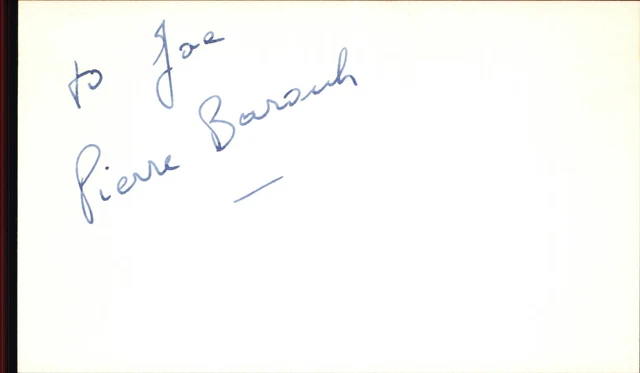 to Joe
Pierre Barouh